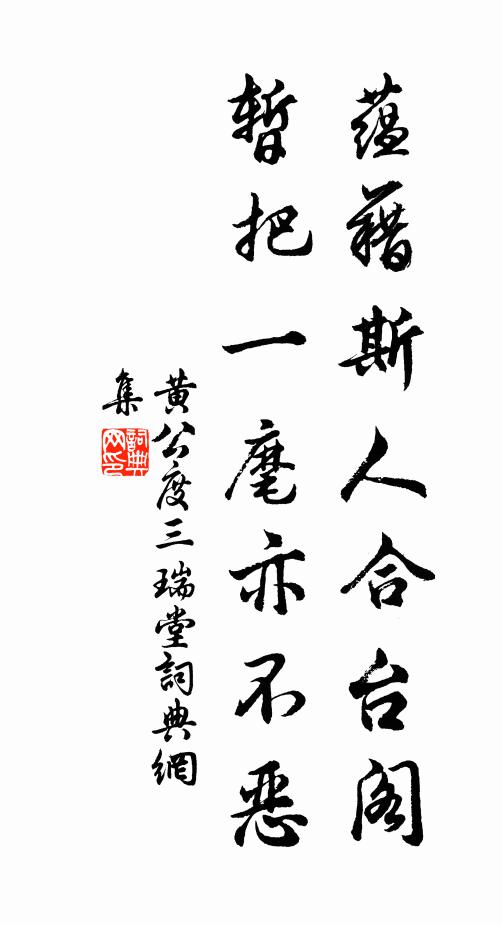 蕴藉斯人合台阁
暂把一麾亦不恶
黄公度三瑞堂詞典網
集
詞典
网印